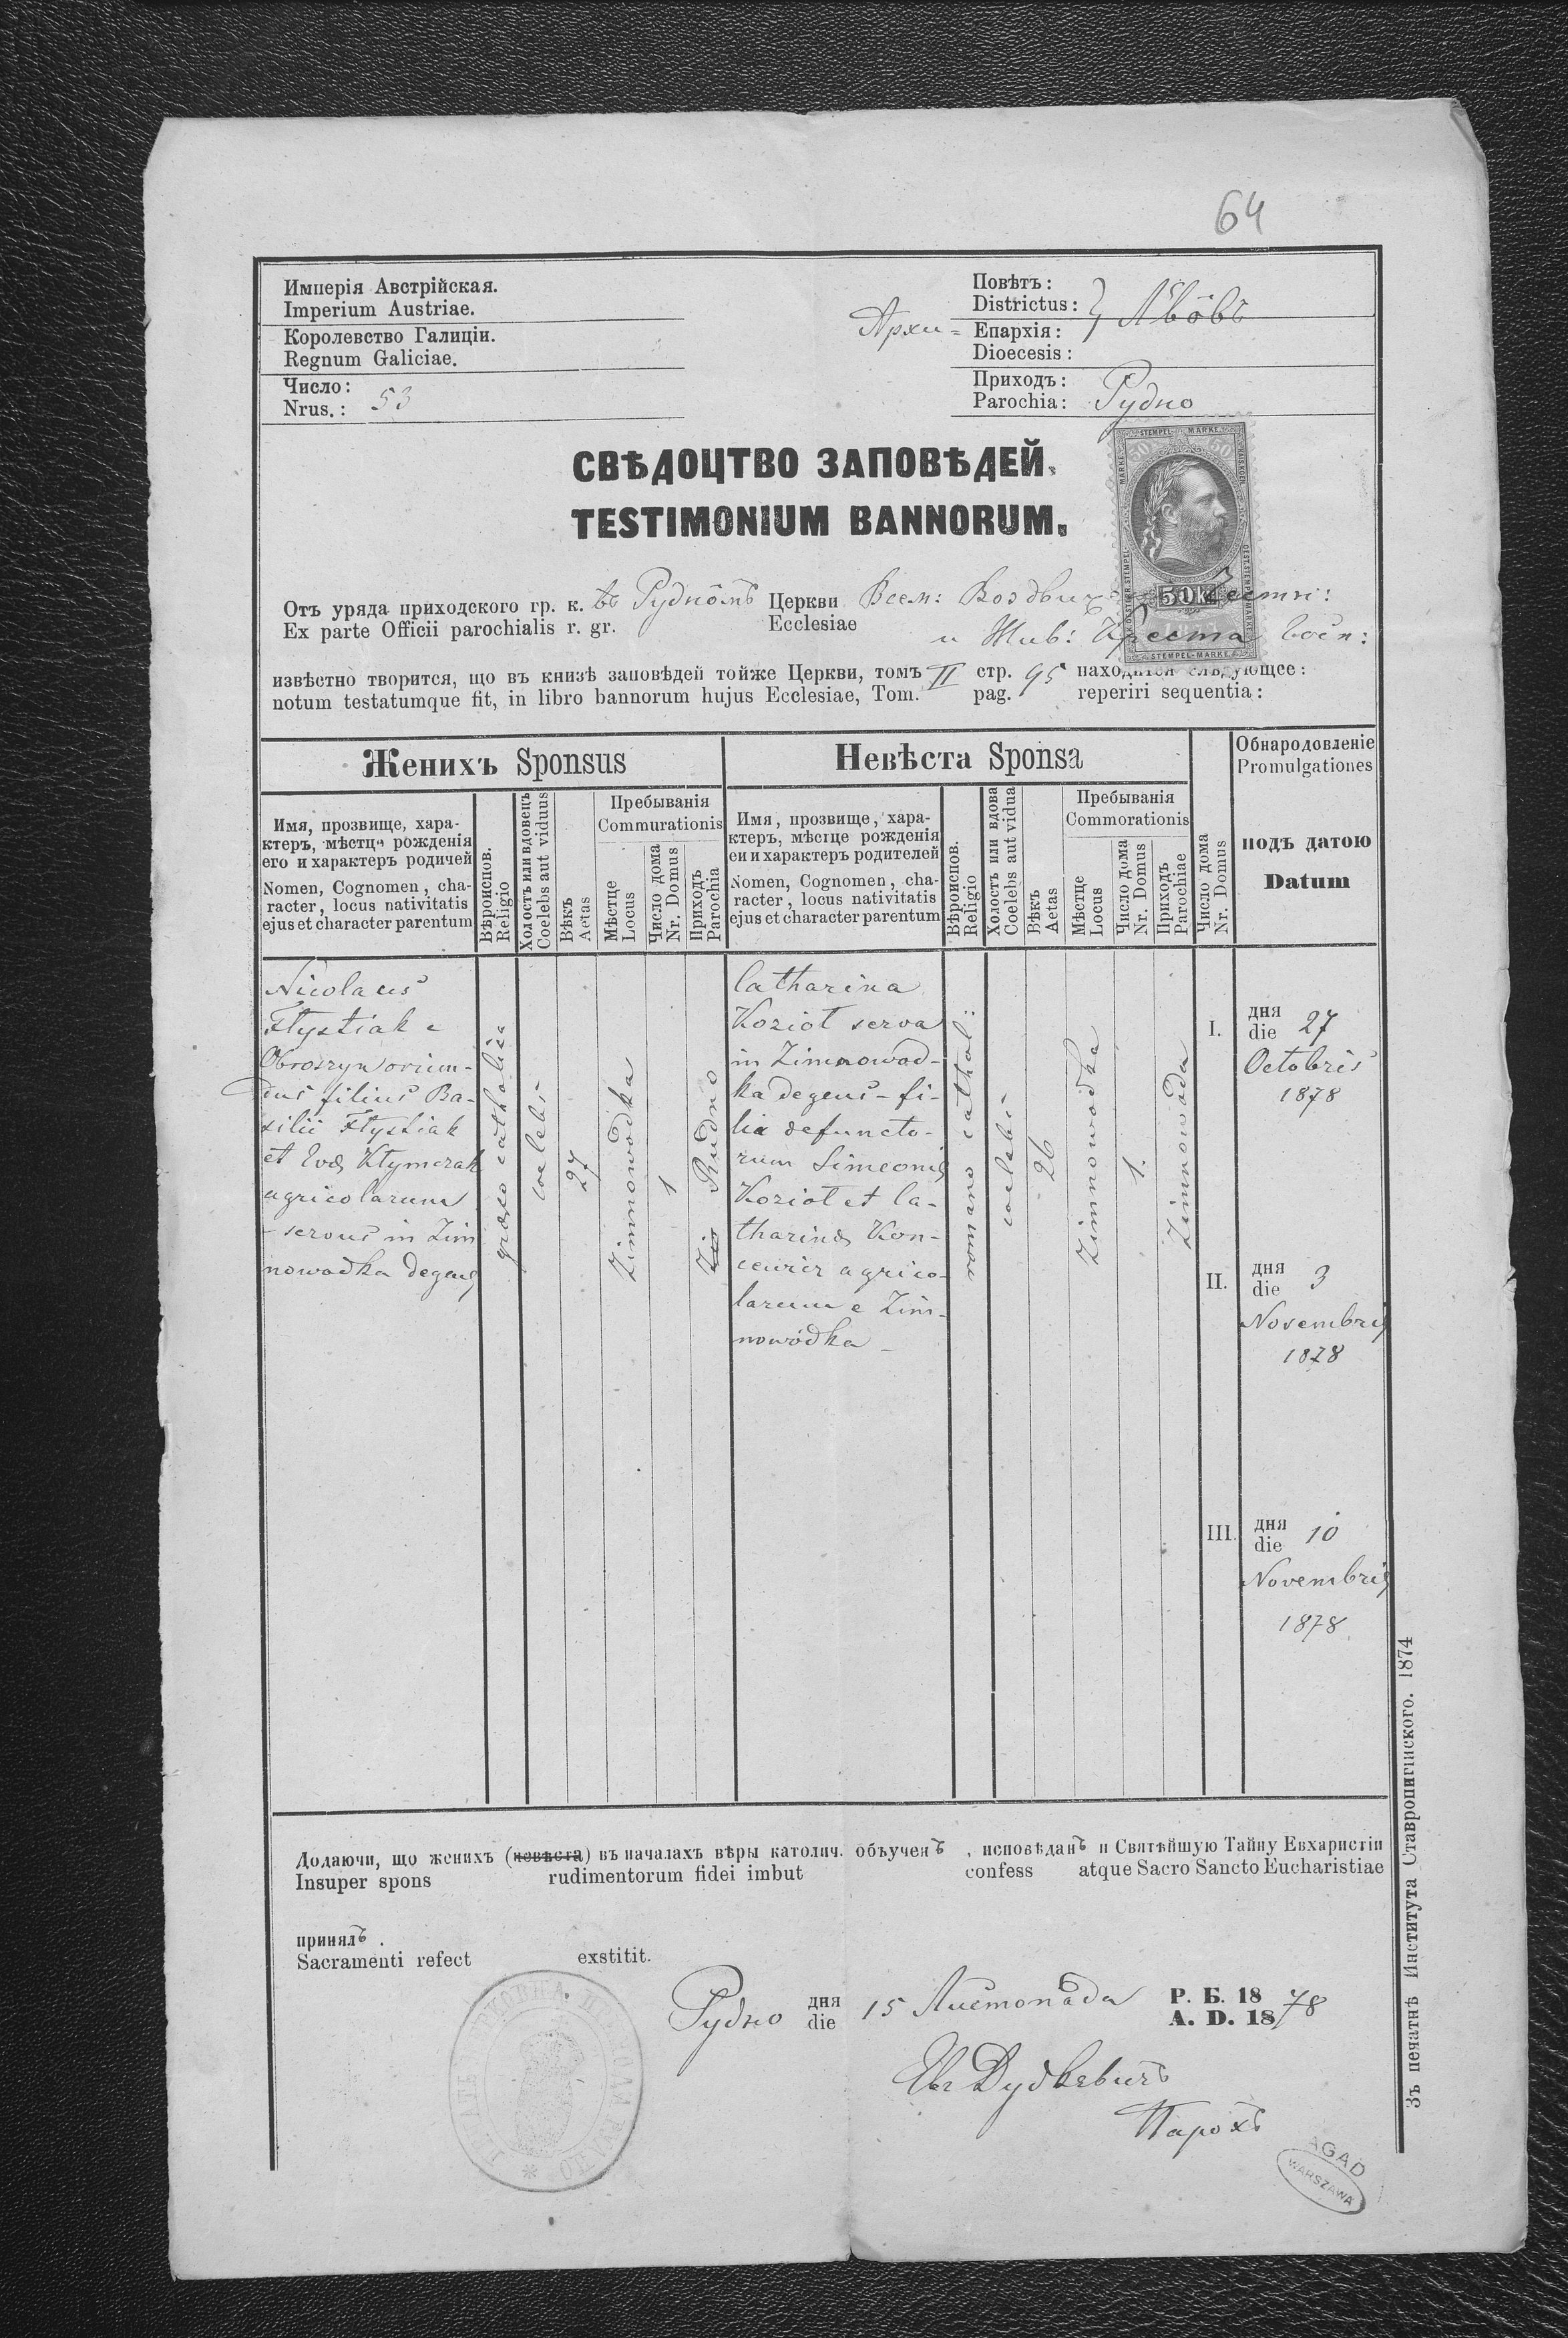 64
Имперія Австрійская.
Imperium Austriae.
Королевство Галиціи.
Regnum Galiciae.
Число:
Nrus.: 53
Повѣтъ:
Districtus: } Львôвъ
Архи= Епархія:
Dioecesis:
Приходъ:
Parochia: Рудно
СВѢДОЦТВО ЗАПОВѢДЕЙ.
TESTIMONIUM BANNORUM.
STEMPEL-MARKE.
50 50
50 k
1877
STEMPEL-MARKE.
Отъ уряда приходского гр. к. въ Руднôмъ Церкви Всем: Воздвиж Честн:
Ex parte Officii parochialis r. gr. Ecclesiae и Жив: Креста
извѣстно творится, що въ книзѣ заповѣдей тойже Церкви, томъ II стр. 95 находится слѣдующее:
notum testatumque fit, in libro bannorum hujus Ecclesiae, Tom. pag. reperiri sequentia:
Женихъ Sponsus
Невѣста Sponsa
Обнародовленіе
Promulgationes
Имя, прозвище, хара-
ктеръ, мѣстце рожденія
его и характеръ родичей
Nomen, Cognomen, cha-
racter, locus nativitatis
ejus et character parentum
Вѣроиспов.
Religio
Холостъ или вдовецъ
Coelebs aut viduus
Вѣкъ
Aetas
Пребыванія
Commurationis
Мѣстце
Locus
Число дома
Nr. Domus
Приходъ
Parochia
Имя, прозвище, хара-
ктеръ, мѣстце рожденія
еи и характеръ родителей
Nomen, Cognomen, cha-
racter, locus nativitatis
ejus et character parentum
Вѣроиспов.
Religio
Холостъ или вдова
Coelebs aut vidua
Вѣкъ
Aetas
Пребыванія
Commorationis
Мѣстце
Locus
Число дома
Nr. Domus
Приходъ
Parochiae
Число дома
Nr. Domus
подъ датою
Datum
Nicolaus
Ftystiak e
Obroszyn oriun-
dus filius Ba-
silii Ftystiak
et Evæ Klymczak
agricolarum
- servus in Zim
nowodka degens
græco catholica
coelebs
27
Zimnowodka
1
Rudno
Catharina
Kozioł serva
in Zimnowod-
ka degens - fi-
lia defuncto-
rum Simeonis
Kozioł et Ca-
tharinæ Kon-
cewicz agrico-
larum e Zim-
nowódka -
romano cathol:
coelebs
26
Zimnowodka
1.
Zimnowoda
I. дня
die 27
Octobris
1878
II. дня
die 3
Novembris
1878
III. дня
die 10
Novembris
1878
Додаючи, що женихъ (невѣста) въ началахъ вѣры католич. объученъ, исповѣданъ и Святѣйшую Тайну Евхаристіи
Insuper spons rudimentorum fidei imbut confess atque Sacro Sancto Eucharistiae
принялъ.
Sacramenti refect exstitit.
Рудно дня
die 15 Листопада Р. Б. 18
A. D. 1878
Дудкевичъ
Парохъ
Зъ печатнѣ Института Ставропигійского. 1874
AGAD
WARSZAWA